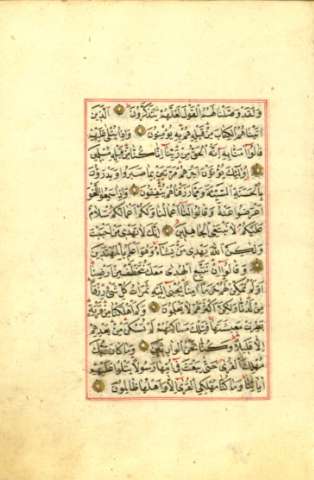 وَلَقَدْ وَصَّلْنَا لَهُمُ الْقَوْلَ لَعَلَّهُمْ يَتَذَكَّرُونَ الَّذِينَ
اٰتَيْنَاهُمُ الْكِتَابَ مِنْ قَبْلِهِ هُمْ بِهِ يُؤْمِنُونَ وَاِذَا يُتْلٰى عَلَيْهِمْ
قَالُوا اٰمَنَّا بِهِ اِنَّهُ الْحَقُّ مِنْ رَبِّنَا اِنَّا كُنَّا مِنْ قَبْلِهِ مُسْلِمِينَ
اُولٰئِكَ يُؤْتَوْنَ اَجْرَهُمْ مَرَّتَيْنِ بِمَا صَبَرُوا وَيَدْرَؤُنَ
بِالْحَسَنَةِ السَّيِّئَةَ وَمِمَّا رَزَقْنَاهُمْ يُنْفِقُونَ وَاِذَا سَمِعُوا اللَّغْوَ
اَعْرَضُوا عَنْهُ وَقَالُوا لَنَا اَعْمَالُنَا وَلَكُمْ اَعْمَالُكُمْ سَلَامٌ
عَلَيْكُمْ لَا نَبْتَغِي الْجَاهِلِينَ اِنَّكَ لَا تَهْدِي مَنْ اَحْبَبْتَ
وَلٰكِنَّ اللّٰهَ يَهْدِي مَنْ يَشَاءُ وَهُوَ اَعْلَمُ بِالْمُهْتَدِينَ
وَقَالُوا اِنْ نَتَّبِعِ الْهُدٰى مَعَكَ نُتَخَطَّفْ مِنْ اَرْضِنَا
اَوَلَمْ نُمَكِّنْ لَهُمْ حَرَمًا اٰمِنًا يُجْبٰى اِلَيْهِ ثَمَرَاتُ كُلِّ شَيْءٍ رِزْقًا
مِنْ لَدُنَّا وَلٰكِنَّ اَكْثَرَهُمْ لَا يَعْلَمُونَ وَكَمْ اَهْلَكْنَا مِنْ قَرْيَةٍ
بَطِرَتْ مَعِيشَتَهَا فَتِلْكَ مَسَاكِنُهُمْ لَمْ تُسْكَنْ مِنْ بَعْدِهِمْ
اِلَّا قَلِيلًا وَكُنَّا نَحْنُ الْوَارِثِينَ وَمَا كَانَ رَبُّكَ
مُهْلِكَ الْقُرٰى حَتّٰى يَبْعَثَ فِي اُمِّهَا رَسُولًا يَتْلُوا عَلَيْهِمْ
اٰيَاتِنَا وَمَا كُنَّا مُهْلِكِي الْقُرٰى اِلَّا وَاَهْلُهَا ظَالِمُونَ